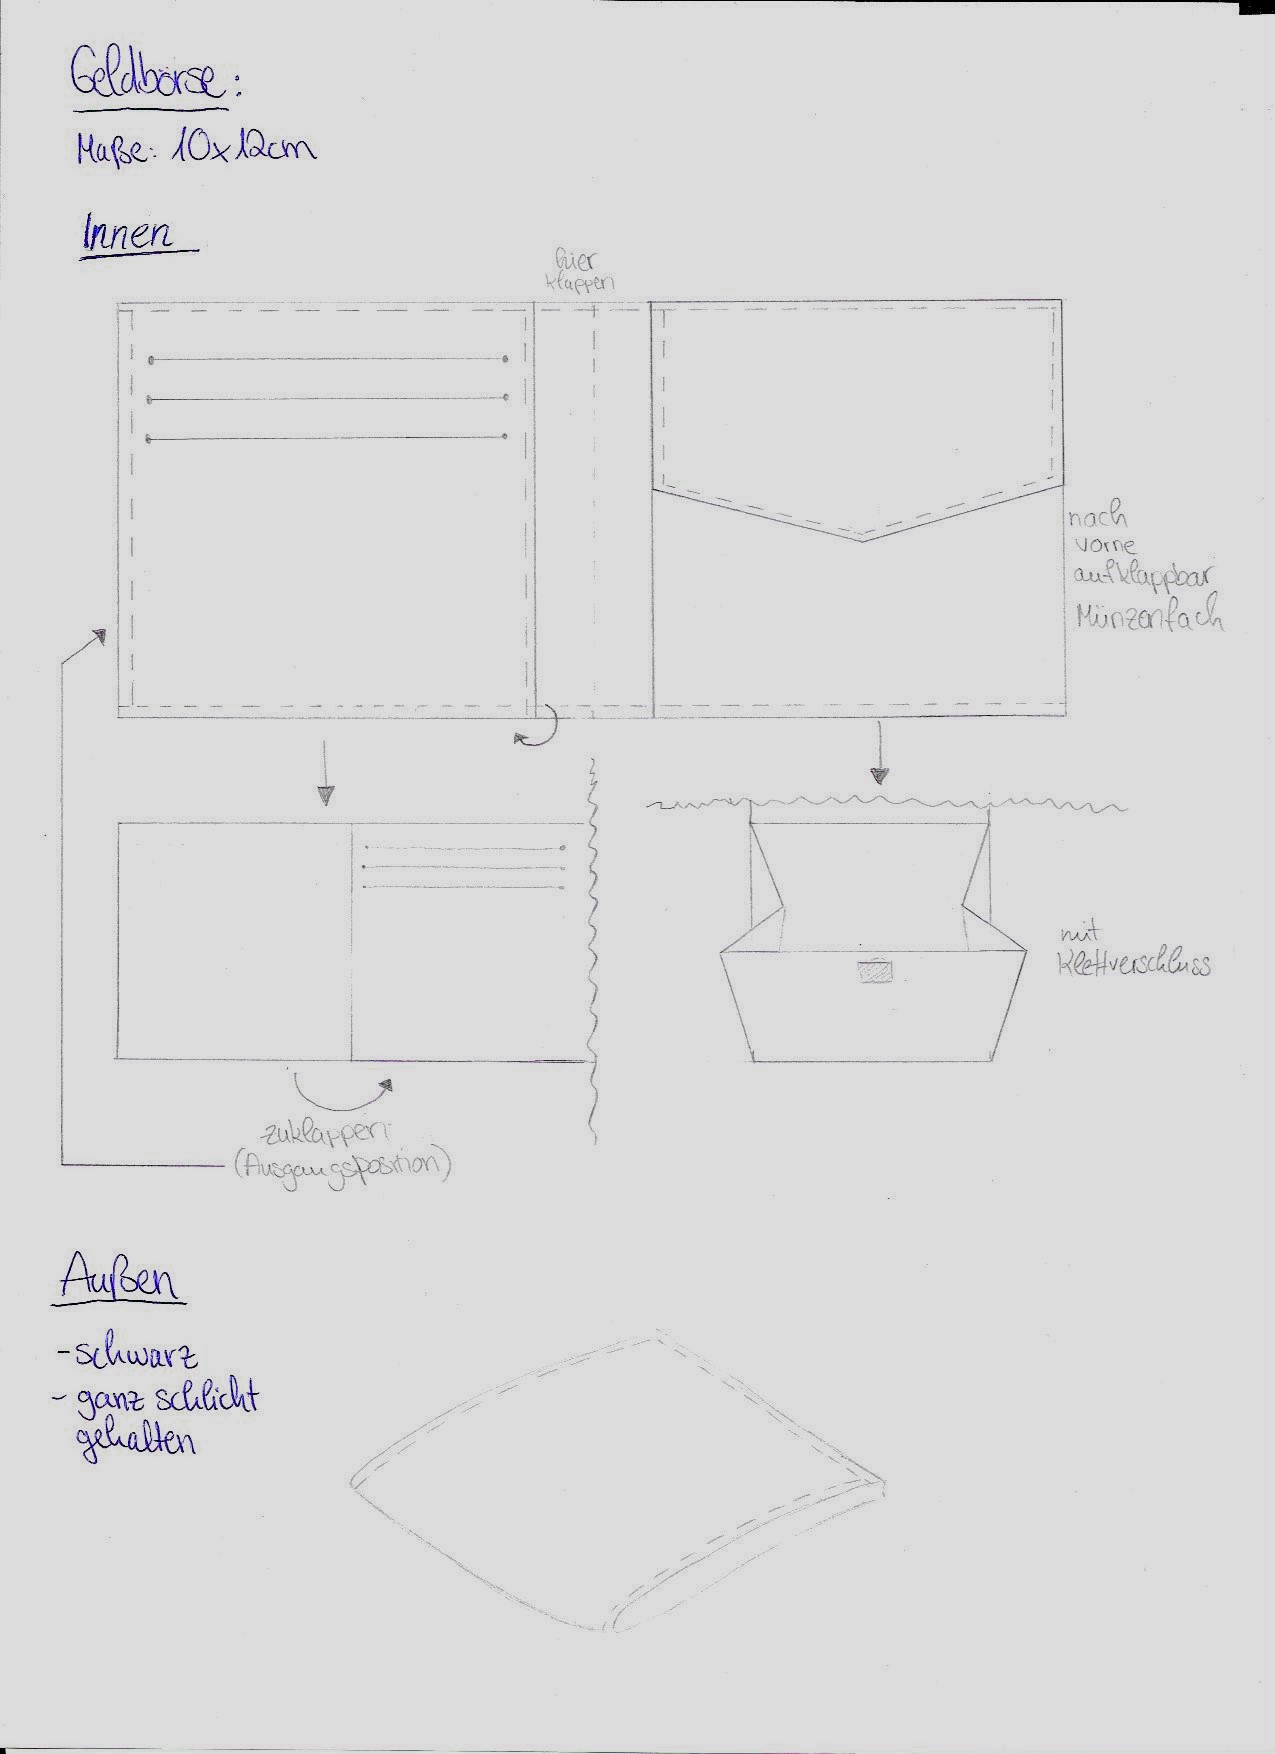 Geldbörse:
Maße: 10x12cm
Innen
hier
klappen
nach
vorne
aufklappbar
Münzenfach
mit
Klettverschluss
zuklappen
(Ausgangsposition)
Außen
- schwarz
- ganz schlicht
gehalten